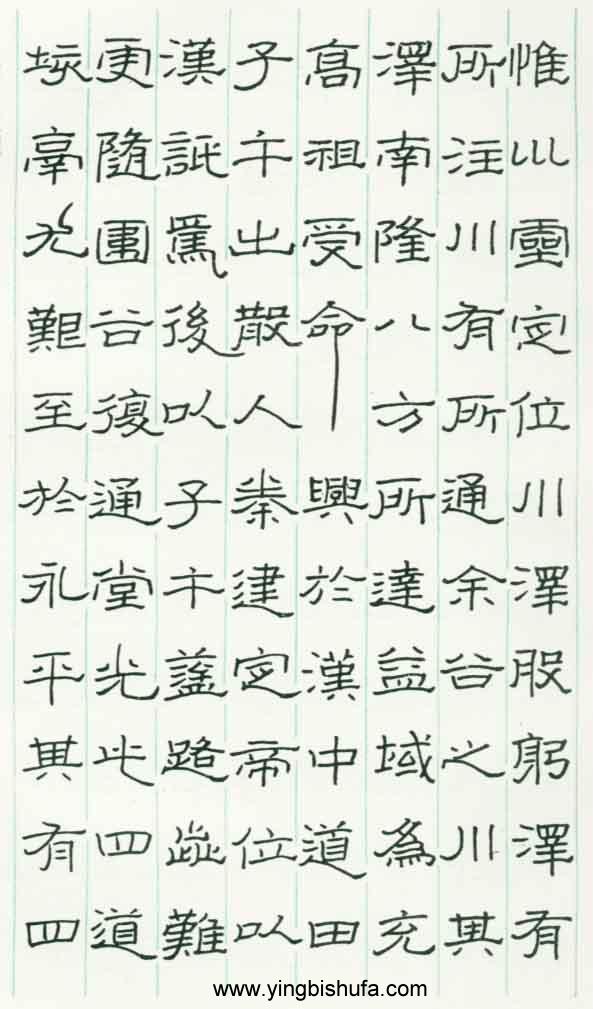 惟巛靈定位川澤股躬澤有
所注川有所通余谷之川其
澤南隆八方所達益域為充
高祖受命興於漢中道田
子午出散入秦建定帝位以
漢詆焉後以子午塗路歰難
更隨圍谷復通堂光此四道
垓鬲尤艱至於永平其有四
www.yingbishufa.com